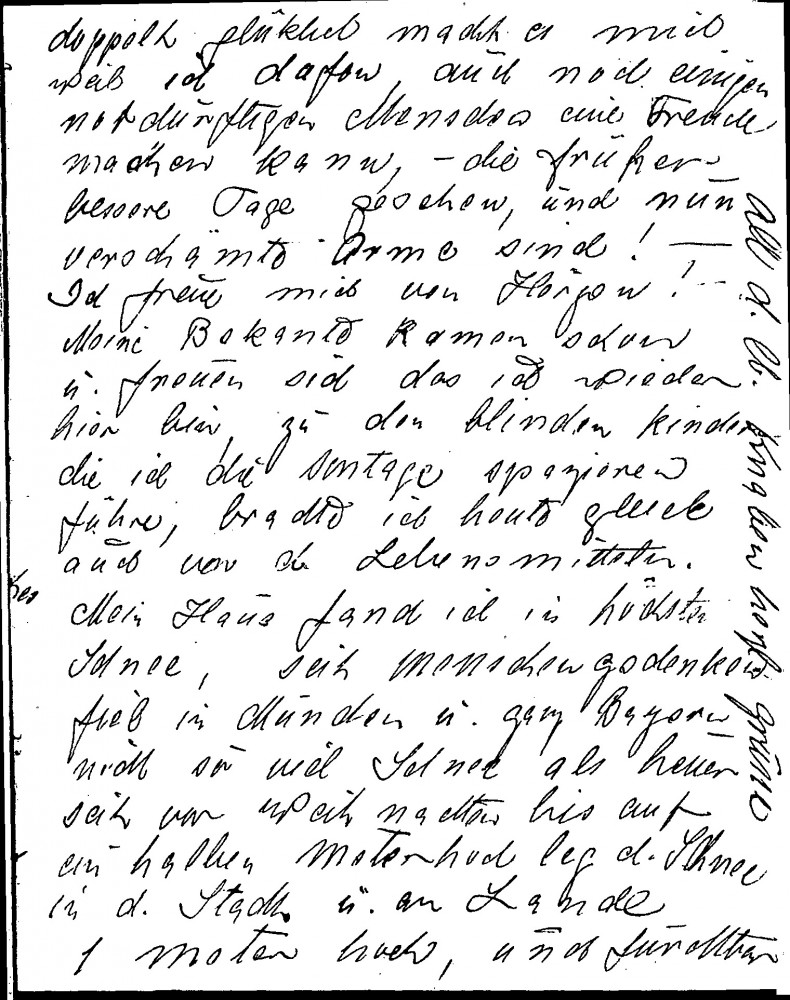 doppelt glüklich macht es mich
weil ich dafon, auch noch einigen
notdürftigen Menschen eine Freude
machen kann, – die früher
bessere Tage gesehen, und nun
verschämte Arme sind! —
Ich freue mich von Herzen! –
Meine Bekante kamen schon
u. freuen sich das ich wieder
hier bin, zu den blinden kinder
die ich die Sontage spazieren
führe, brachte ich heute gleich
auch von d. Lebensmitteln.
Mein Haus fand ich in höchsten
Schnee, seit menschengedenken
fiel in München u. ganz Bayern
nicht so viel Schnee als heuer
seit vor Weihnachten bis auf
ein halben Meterhoch leg d. Schnee
in d. Stadt u. am Lande
1 meter hoch, und fürchtbar
all d. lb. Knaben herzl. grüsse